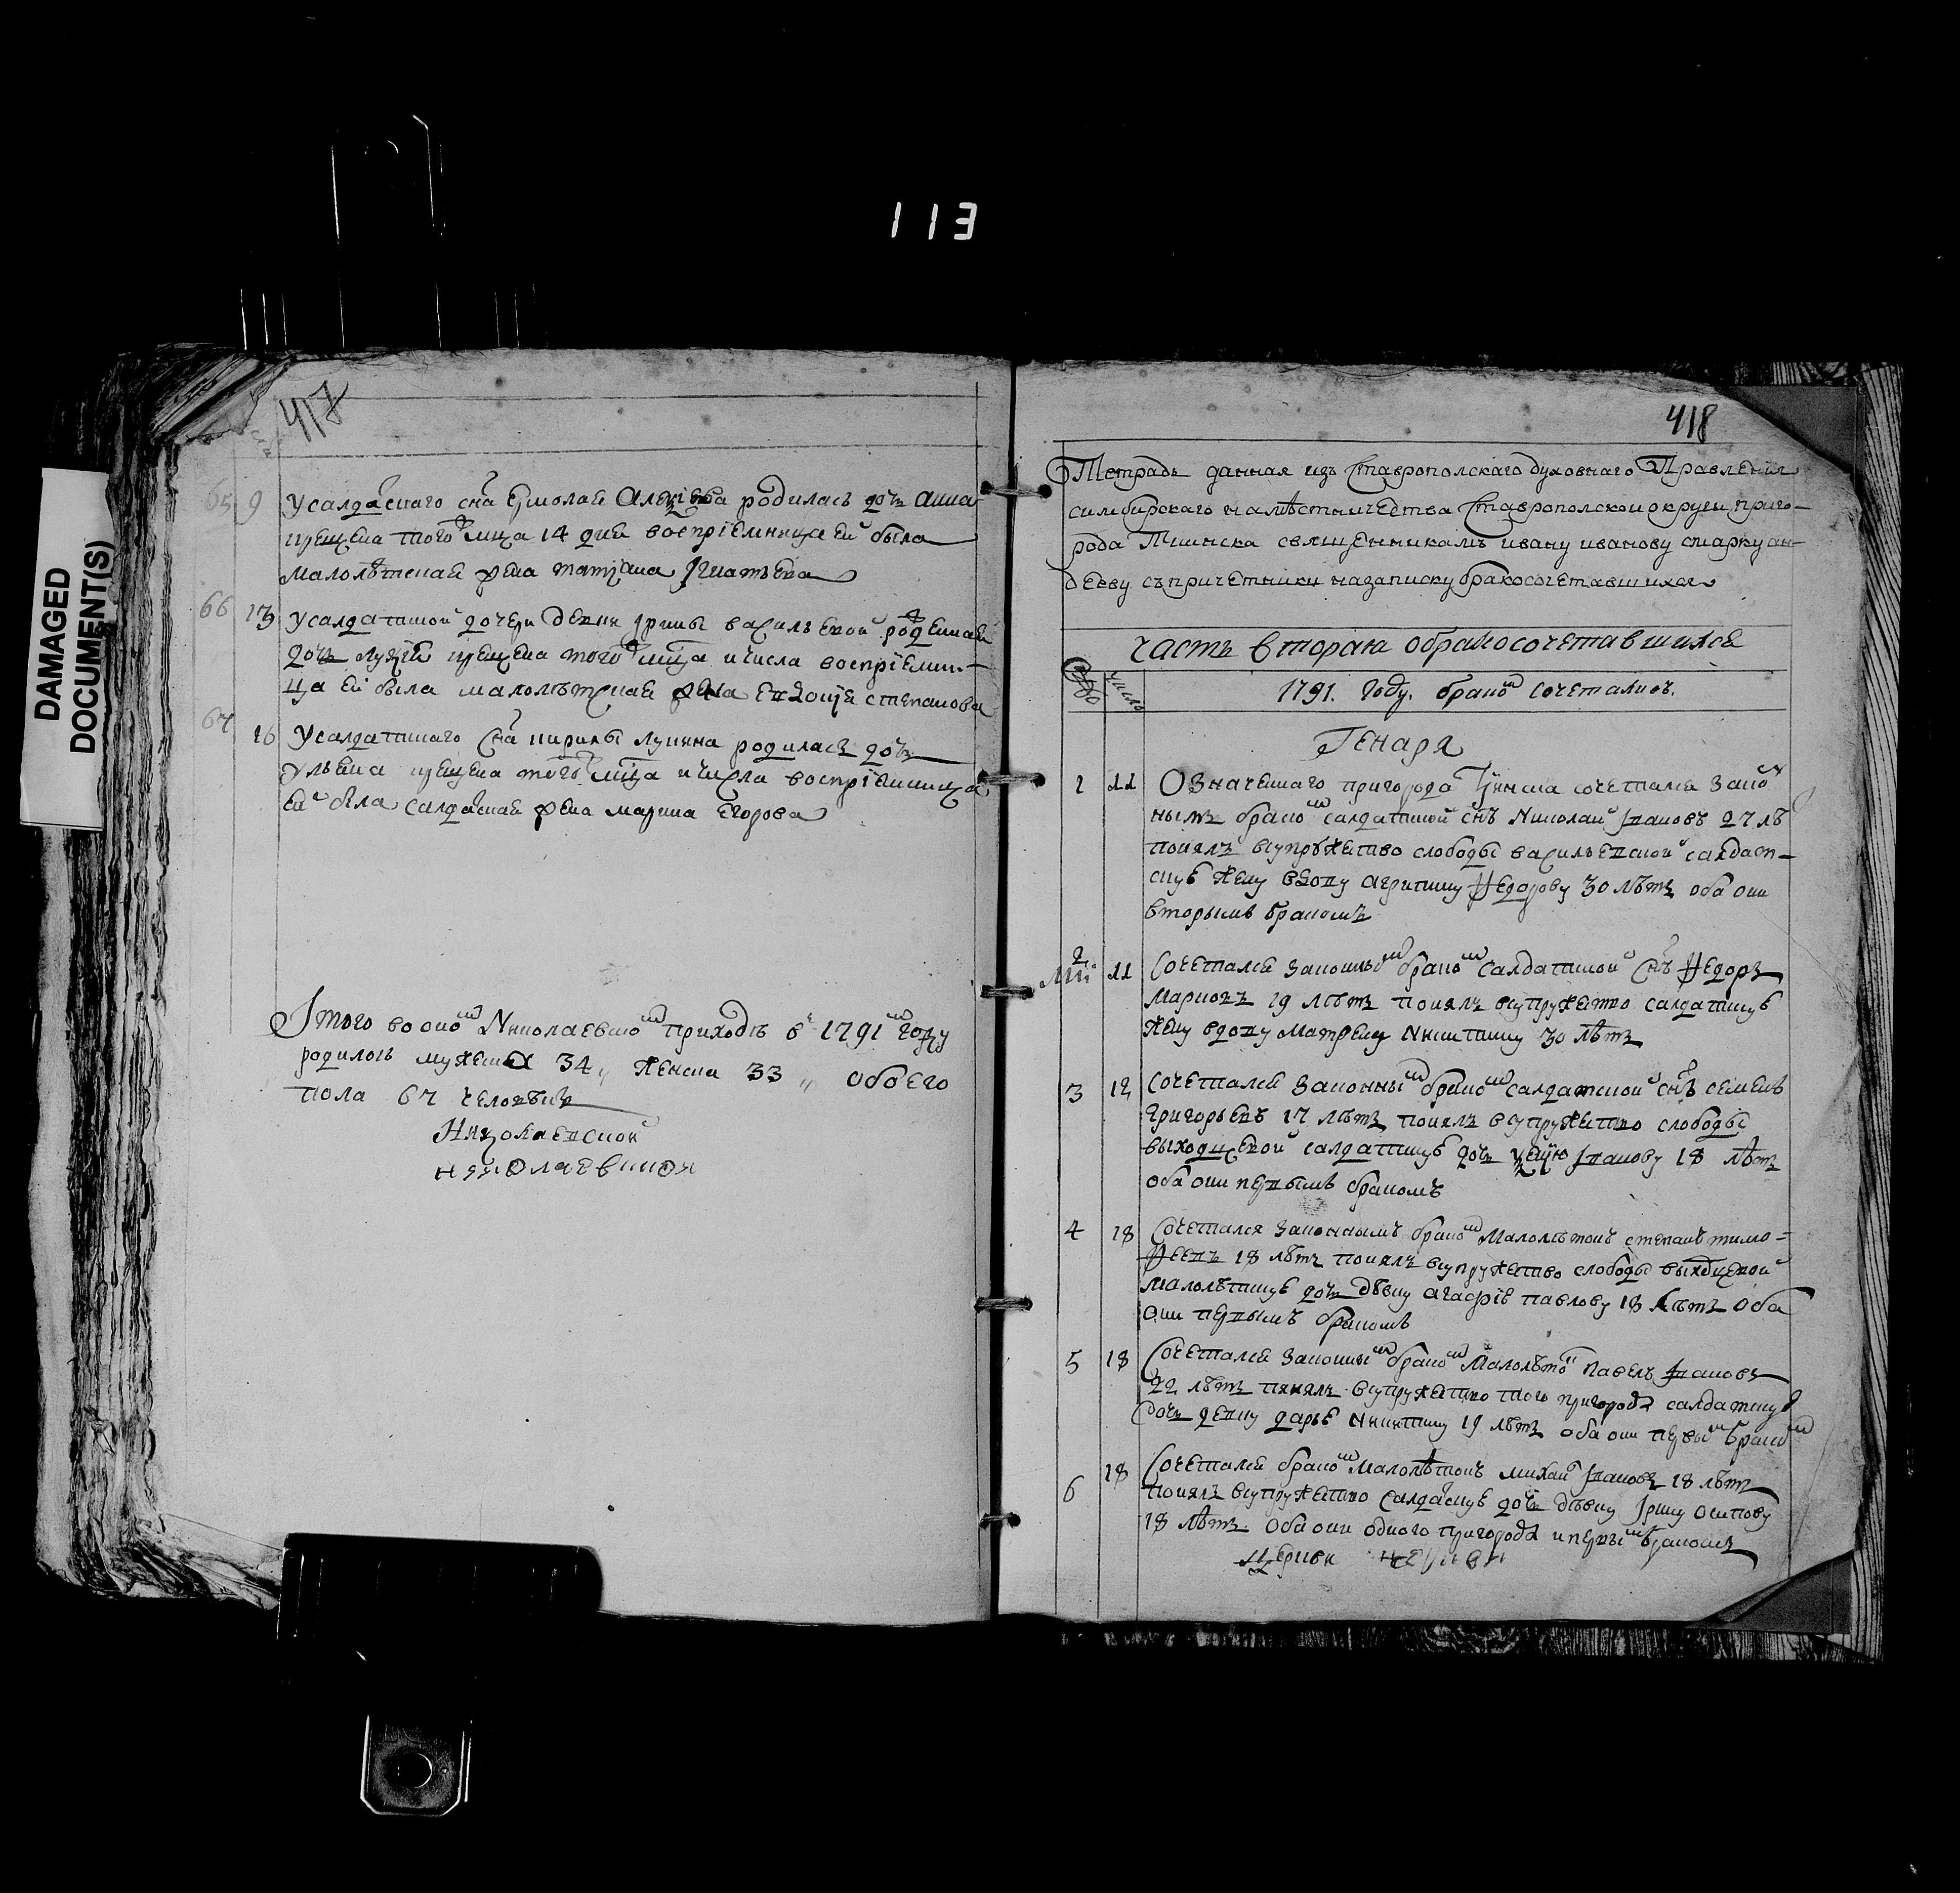 113
DAMAGED
DOCUMENT(S)
417
65 9 У салдацкаго сна Ермолая родилась дочь анна
крещена того мца 14 дня воспріемница ей была
малолѣтская жена татіана Iгнатьева
66 13 У салдатской дочери девки Iрины васильевой
дочь крещена того мца и числа воспріемни-
ца ей была малолѣтская жена евдокія степанова
67 16 У салдатскаго сна кирилы лукина родилась дочь
ульяна крещена того мца и числа воспріемница
ей была салдацкая жена марина Егорова
Iтого во оном Николаевском приходѣ в 1791м году
родилось мужеска 34,, женска 33,, обоего
пола 67 человѣкъ
Николаевской
николаевской
418
Тетрадь данная изъ Ставрополскаго духовнаго Правления
симбирскаго намѣстничества Ставрополской округи приго-
рода Тиинска священникамъ ивану иванову
съ причетники на записку бракосочетавшихся
часть вторая о бракосочетавшихся
число
1791. году. браком сочетались.
Генаря
1 11 Означеннаго пригорода Тиинска сочетался закон
нымъ браком салдатской снъ Николай Iвановъ 27 лѣ
понялъ в супружество слободы васильевской салдат-
скую жену вдову Федорову 30 лѣтъ оба они
вторымъ бракомъ
2 11 Сочетался законным браком салдатской снъ Федоръ
Марковъ 19 лѣтъ понялъ в супружество салдатскую
жену вдову Матрену Никитину 30 лѣтъ
3 12 Сочетался законным браком салдатской снъ семенъ
Григорьевъ 17 лѣтъ понялъ в супружество слободы
салдатскую дочь Iванову 18 лѣтъ
оба они первымъ бракомъ
4 18 Сочетался законнымъ браком Малолѣтокъ степанъ тимо-
феевъ 18 лѣтъ понялъ в супружество слободы
малолѣтскую дочь дѣвку агафію павлову 18 лѣтъ оба
они первымъ бракомъ
5 18 Сочетался законным браком Малолѣток павелъ Iвановъ
22 лѣтъ понялъ в супружество того пригорода салдатскую
дочь девку дарью Никитину 19 лѣтъ оба они первым браком
6 18 Сочетался браком Малолѣтокъ михаи Iвановъ 18 лѣтъ
понялъ в супружество салдацкую дочь дѣвку Iрину Осипову
18 лѣтъ оба они одного пригорода и первым бракомъ
Церкви